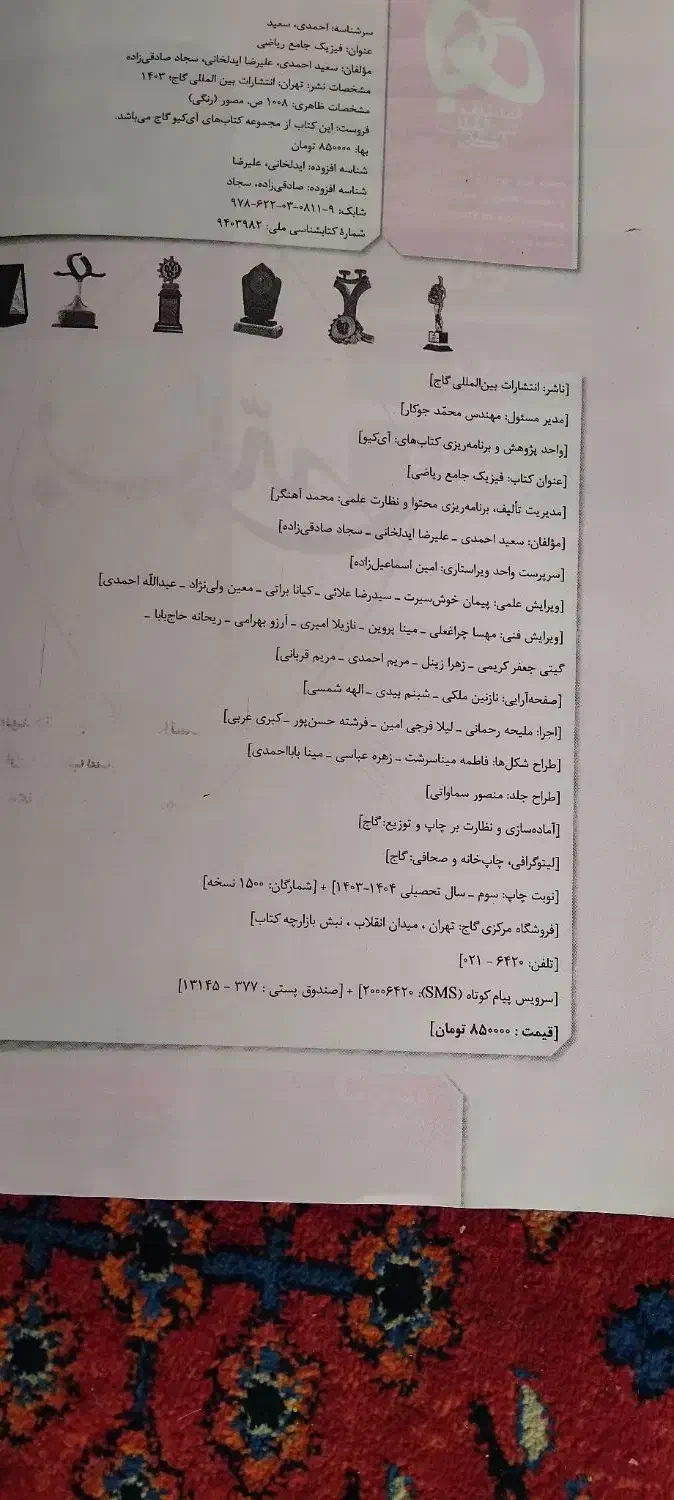 سرشناسه: احمدی، سعید
عنوان: فیزیک جامع ریاضی
مؤلفان: سعید احمدی، علیرضا ایدلخانی، سجاد صادقی‌زاده
مشخصات نشر: تهران: انتشارات بین المللی گاج؛ ۱۴۰۳
مشخصات ظاهری: ۱۰۰۸ ص. مصور (رنگی)
فروست: این کتاب از مجموعه کتاب‌های آی‌کیو گاج می‌باشد.
بها: ۸۵۰۰۰۰ تومان
شناسه افزوده: ایدلخانی، علیرضا
شناسه افزوده: صادقی‌زاده، سجاد
شابک: ۹-۰۸۱۱-۰۳-۶۲۲-۹۷۸
شمارهٔ کتابشناسی ملی: ۹۴۰۳۹۸۲
[ناشر: انتشارات بین‌المللی گاج]
[مدیر مسئول: مهندس محمّد جوکار]
[واحد پژوهش و برنامه‌ریزی کتاب‌های: آی‌کیو]
[عنوان کتاب: فیزیک جامع ریاضی]
[مدیریت تألیف، برنامه‌ریزی محتوا و نظارت علمی: محمد آهنگر]
[مؤلفان: سعید احمدی ـ علیرضا ایدلخانی ـ سجاد صادقی‌زاده]
[سرپرست واحد ویراستاری: امین اسماعیل‌زاده]
[ویرایش علمی: پیمان خوش‌سیرت ـ سیدرضا علائی ـ کیانا براتی ـ معین ولی‌نژاد ـ عبداللّه احمدی]
[ویرایش فنی: مهسا چراغعلی ـ مینا پروین ـ نازیلا امیری ـ آرزو بهرامی ـ ریحانه حاج‌بابا ـ
گیتی جعفر کریمی ـ زهرا زینل ـ مریم احمدی ـ مریم قربانی]
[صفحه‌آرایی: نازنین ملکی ـ شبنم بیدی ـ الهه شمسی]
[اجرا: ملیحه رحمانی ـ لیلا فرجی امین ـ فرشته حسن‌پور ـ کبری عربی]
[طراح شکل‌ها: فاطمه میناسرشت ـ زهره عباسی ـ مینا بابااحمدی]
[طراح جلد: منصور سماواتی]
[آماده‌سازی و نظارت بر چاپ و توزیع: گاج]
[لیتوگرافی، چاپ‌خانه و صحافی: گاج]
[نوبت چاپ: سوم ـ سال تحصیلی ۱۴۰۴-۱۴۰۳] + [شمارگان: ۱۵۰۰ نسخه]
[فروشگاه مرکزی گاج: تهران ، میدان انقلاب ، نبش بازارچه کتاب]
[تلفن: ۶۴۲۰ - ۰۲۱]
[سرویس پیام کوتاه (SMS): ۲۰۰۰۶۴۲۰] + [صندوق پستی : ۳۷۷ - ۱۳۱۴۵]
[قیمت : ۸۵۰۰۰۰ تومان]